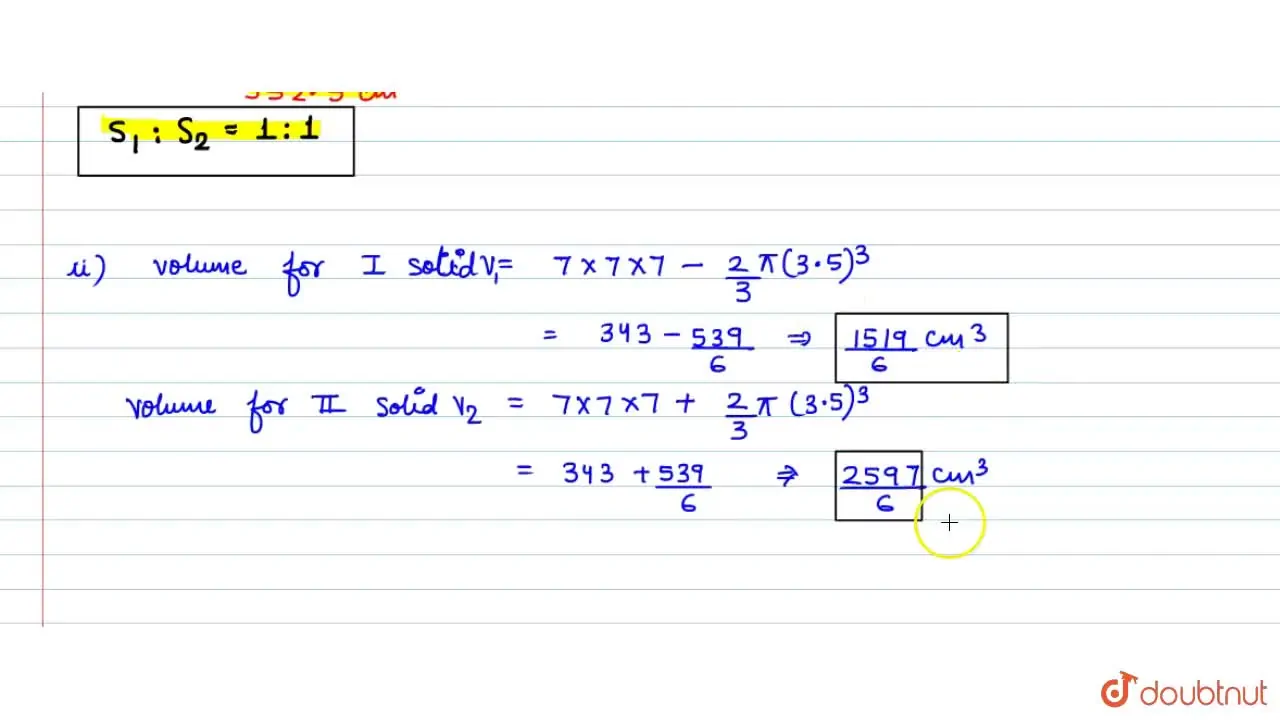 S₁ : S₂ = 1 : 1
ii) volume for I solid V₁ = 7 × 7 × 7 − 2/3 π (3.5)³
= 343 − 539/6 ⇒ 1519/6 cm³
volume for II solid V₂ = 7 × 7 × 7 + 2/3 π (3.5)³
= 343 + 539/6 ⇒ 2597/6 cm³
doubtnut